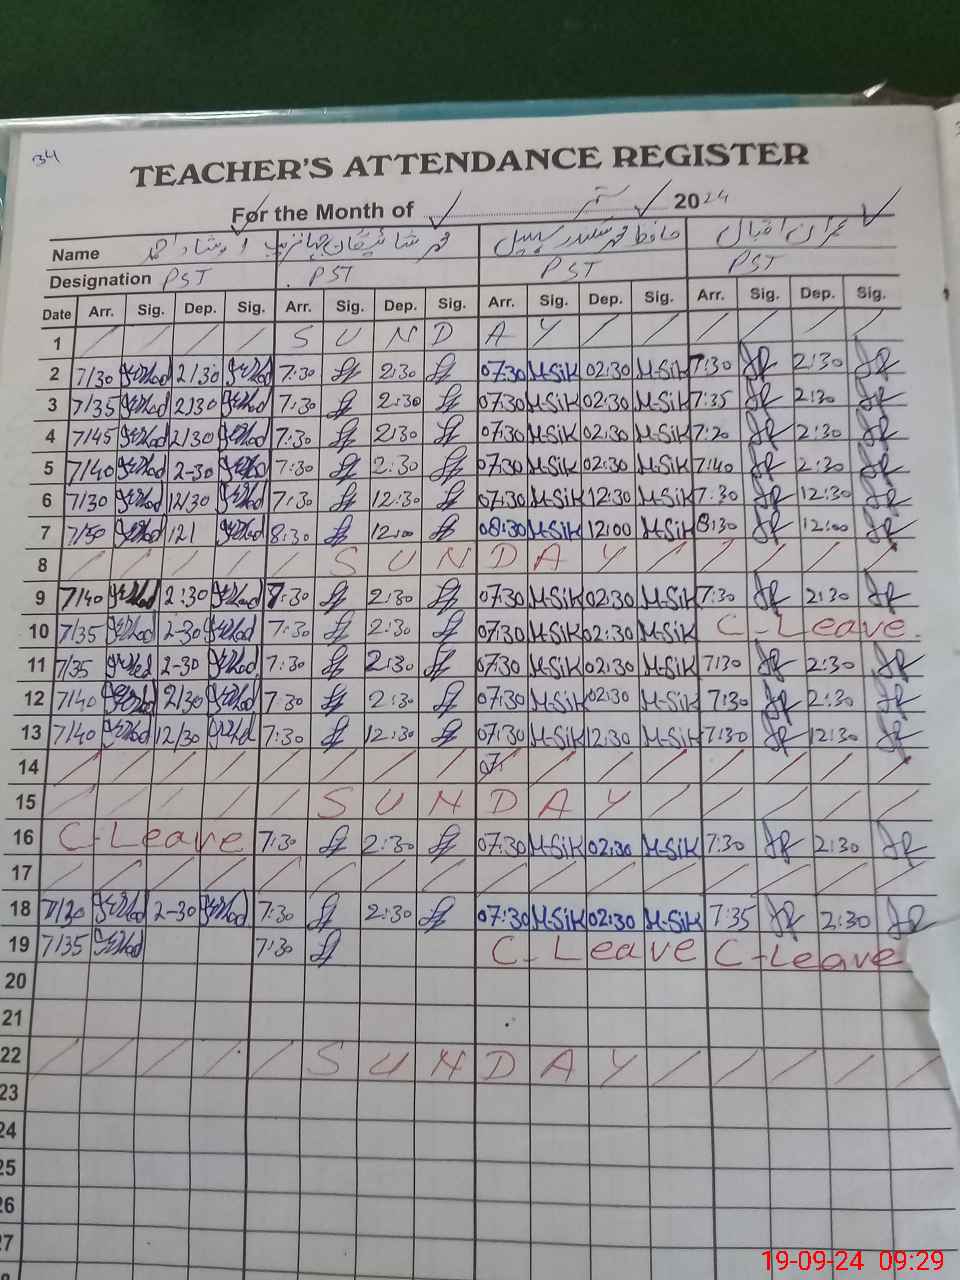 34
TEACHER'S ATTENDANCE REGISTER
For the Month of ستمبر 2024
Name ارشاد احمد محمد شا جہانزیب حافظ محمد سکندر سہیل عمران اقبال
Designation PST PST PST PST
Date Arr. Sig. Dep. Sig. Arr. Sig. Dep. Sig. Arr. Sig. Dep. Sig. Arr. Sig. Dep. Sig.
1 / / / / S U N D A Y / / / / / /
2 7/30 2/30 7:30 2:30 07:30 M-Sik 02:30 M-Sik 7:30 2:30
3 7/35 2/30 7:30 2:30 07:30 M-Sik 02:30 M-Sik 7:35 2:30
4 7/45 2/30 7:30 2:30 07:30 M-Sik 02:30 M-Sik 7:20 2:30
5 7/40 2-30 7:30 2:30 07:30 M-Sik 02:30 M-Sik 7:40 2:30
6 7/30 12/30 7:30 12:30 07:30 M-Sik 12:30 M-Sik 7:30 12:30
7 7/50 121 8:30 12:00 08:30 M-Sik 12:00 M-Sik 8:30 12:00
8 / / / / / S U N D A Y / / / / /
9 7/40 2:30 7:30 2:30 07:30 M-Sik 02:30 M-Sik 7:30 2:30
10 7/35 2-30 7:30 2:30 07:30 M-Sik 02:30 M-Sik C-Leave.
11 7/35 2-30 7:30 2:30 07:30 M-Sik 02:30 M-Sik 7:30 2:30
12 7/40 2/30 7:30 2:30 07:30 M-Sik 02:30 M-Sik 7:30 2:30
13 7/40 12/30 7:30 12:30 07:30 M-Sik 12:30 M-Sik 7:30 12:30
14 / / / / / / / / 07: / / / / / / /
15 / / / / / S U N D A Y / / / / /
16 C-Leave 7:30 2:30 07:30 M-Sik 02:30 M-Sik 7:30 2:30
17 / / / / / / / / / / / / / / / /
18 7/30 2-30 7:30 2:30 07:30 M-Sik 02:30 M-Sik 7:35 2:30
19 7/35 7:30 C-Leave C-Leave
20
21
22 / / / / / S U N D A Y / / / / /
23
24
25
26
27
19-09-24 09:29